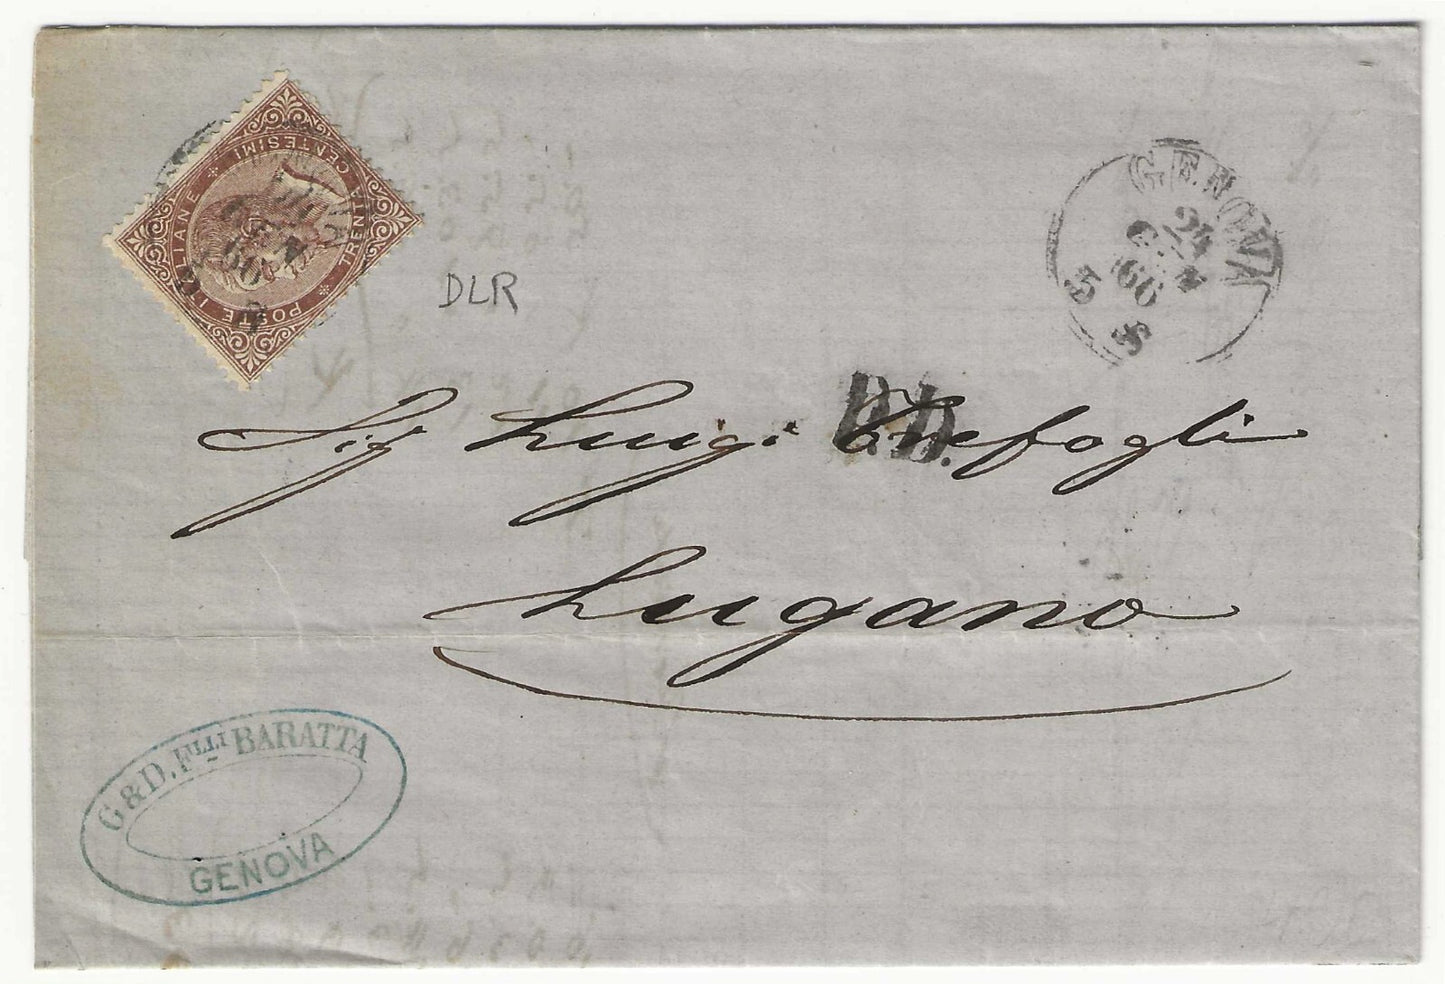 POSTE ITALIANE * TRENTA CENTESIMI *
GENOVA
24
GEN
66
5 S
DLR
GENOVA
24
GEN
66
5 S
P.D.
Sig Luigi Enefogli
Lugano
G & D. FLLI BARATTA
GENOVA